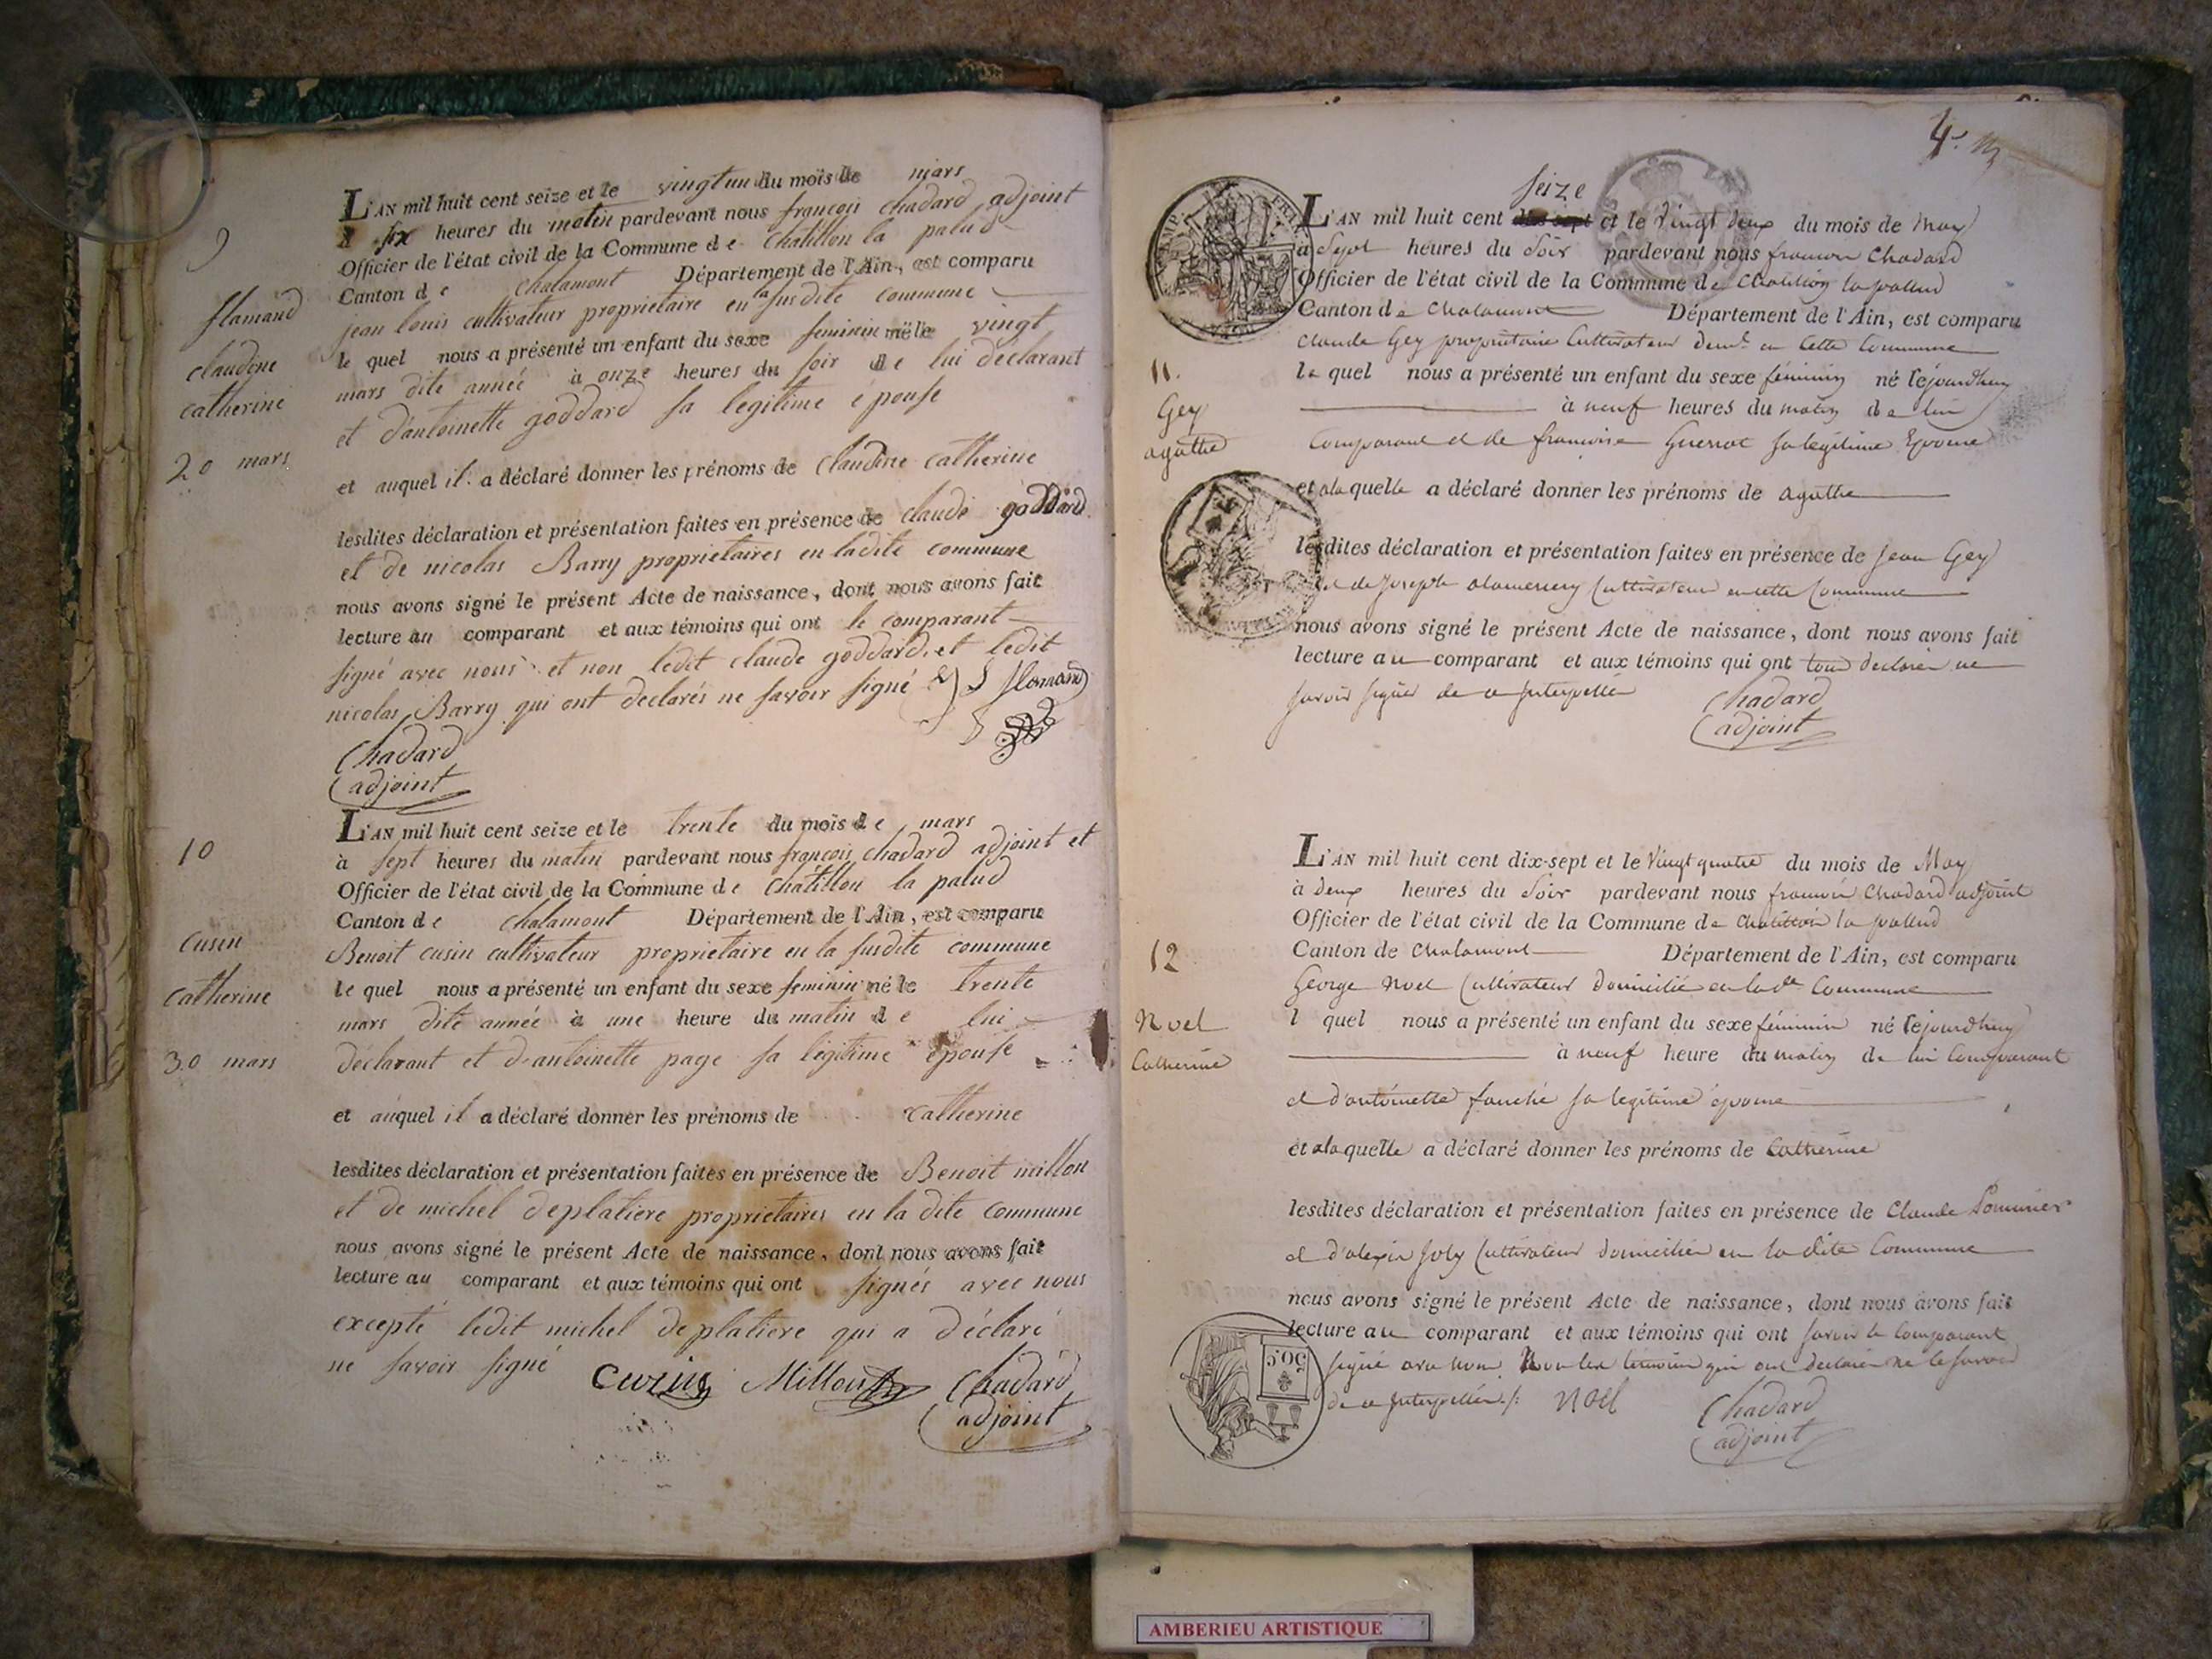 9
flamand
claudine
catherine
20 mars
L'AN mil huit cent seize et le vingtun du mois de mars
à six heures du matin pardevant nous françois chadard adjoint
Officier de l'état civil de la Commune de chatillon la palud
Canton de chalamont Département de l'Ain, est comparu
jean louis cultivateur proprietaire en la susdite commune
le quel nous a présenté un enfant du sexe feminin né le vingt
mars dite année à onze heures du soir de lui déclarant
et d'antoinette goddard sa legitime épouse
et auquel il a déclaré donner les prénoms de claudine catherine
lesdites déclaration et présentation faites en présence de claude goddard
et de nicolas Barry proprietaires en ladite commune
nous avons signé le présent Acte de naissance, dont nous avons fait
lecture au comparant et aux témoins qui ont le comparant
signé avec nous et non ledit claude goddard et ledit
nicolas Barry qui ont declarés ne savoir signé flamand
Chadard
adjoint
10
cusin
catherine
30 mars
L'AN mil huit cent seize et le trente du mois de mars
à sept heures du matin pardevant nous françois chadard adjoint et
Officier de l'état civil de la Commune de chatillon la palud
Canton de chalamont Département de l'Ain, est comparu
Benoit cusin cultivateur proprietaire en la susdite commune
le quel nous a présenté un enfant du sexe feminin né le trente
mars dite année à une heure du matin de lui
déclarant et d'antoinette page sa légitime épouse
et auquel il a déclaré donner les prénoms de catherine
lesdites déclaration et présentation faites en présence de Benoit millon
et de michel deplatiere proprietaires en la dite commune
nous avons signé le présent Acte de naissance, dont nous avons fait
lecture au comparant et aux témoins qui ont signés avec nous
excepté ledit michel deplatiere qui a déclaré
ne savoir signé Cuzin Millon Chadard
adjoint
4.
11.
Gey
agathe
seize
L'AN mil huit cent dix-sept et le Vingt deux du mois de may
à Sept heures du Soir pardevant nous francois Chadard
Officier de l'état civil de la Commune de Chatillon la palud
Canton de Chalamont Département de l'Ain, est comparu
Claude Gey propriétaire Cultivateur demt en Cette Commune
le quel nous a présenté un enfant du sexe féminin né cejourdhuy
à neuf heures du matin de lui
Comparant et de francoise Guerrot sa legitime Epouse
et ala quelle a déclaré donner les prénoms de agathe
lesdites déclaration et présentation faites en présence de Jean Gey
et de Joseph Cultivateur en cette Commune
nous avons signé le présent Acte de naissance, dont nous avons fait
lecture au comparant et aux témoins qui ont tous declaré ne
savoir signer de ce Interpellé
Chadard
adjoint
12
Noel
Catherine
L'AN mil huit cent dix-sept et le Vingt quatre du mois de May
à deux heures du Soir pardevant nous francois Chadard adjoint
Officier de l'état civil de la Commune de Chatillon la palud
Canton de Chalamont Département de l'Ain, est comparu
George Noel Cultivateur domicilié en la de Commune
l quel nous a présenté un enfant du sexe féminin né cejourdhuy
à neuf heure du matin de lui Comparant
et d'antoinette fauché sa legitime épouse
et ala quelle a déclaré donner les prénoms de Catherine
lesdites déclaration et présentation faites en présence de Claude Pommier
et d'alexis Joly Cultivateur domicilié en la dite Commune
nous avons signé le présent Acte de naissance, dont nous avons fait
lecture au comparant et aux témoins qui ont savoir le Comparant
signé avec nous Non les témoins qui ont declaré ne le savoir
de ce Interpellé ./. Noel
Chadard
adjoint
50.C
AMBERIEU ARTISTIQUE